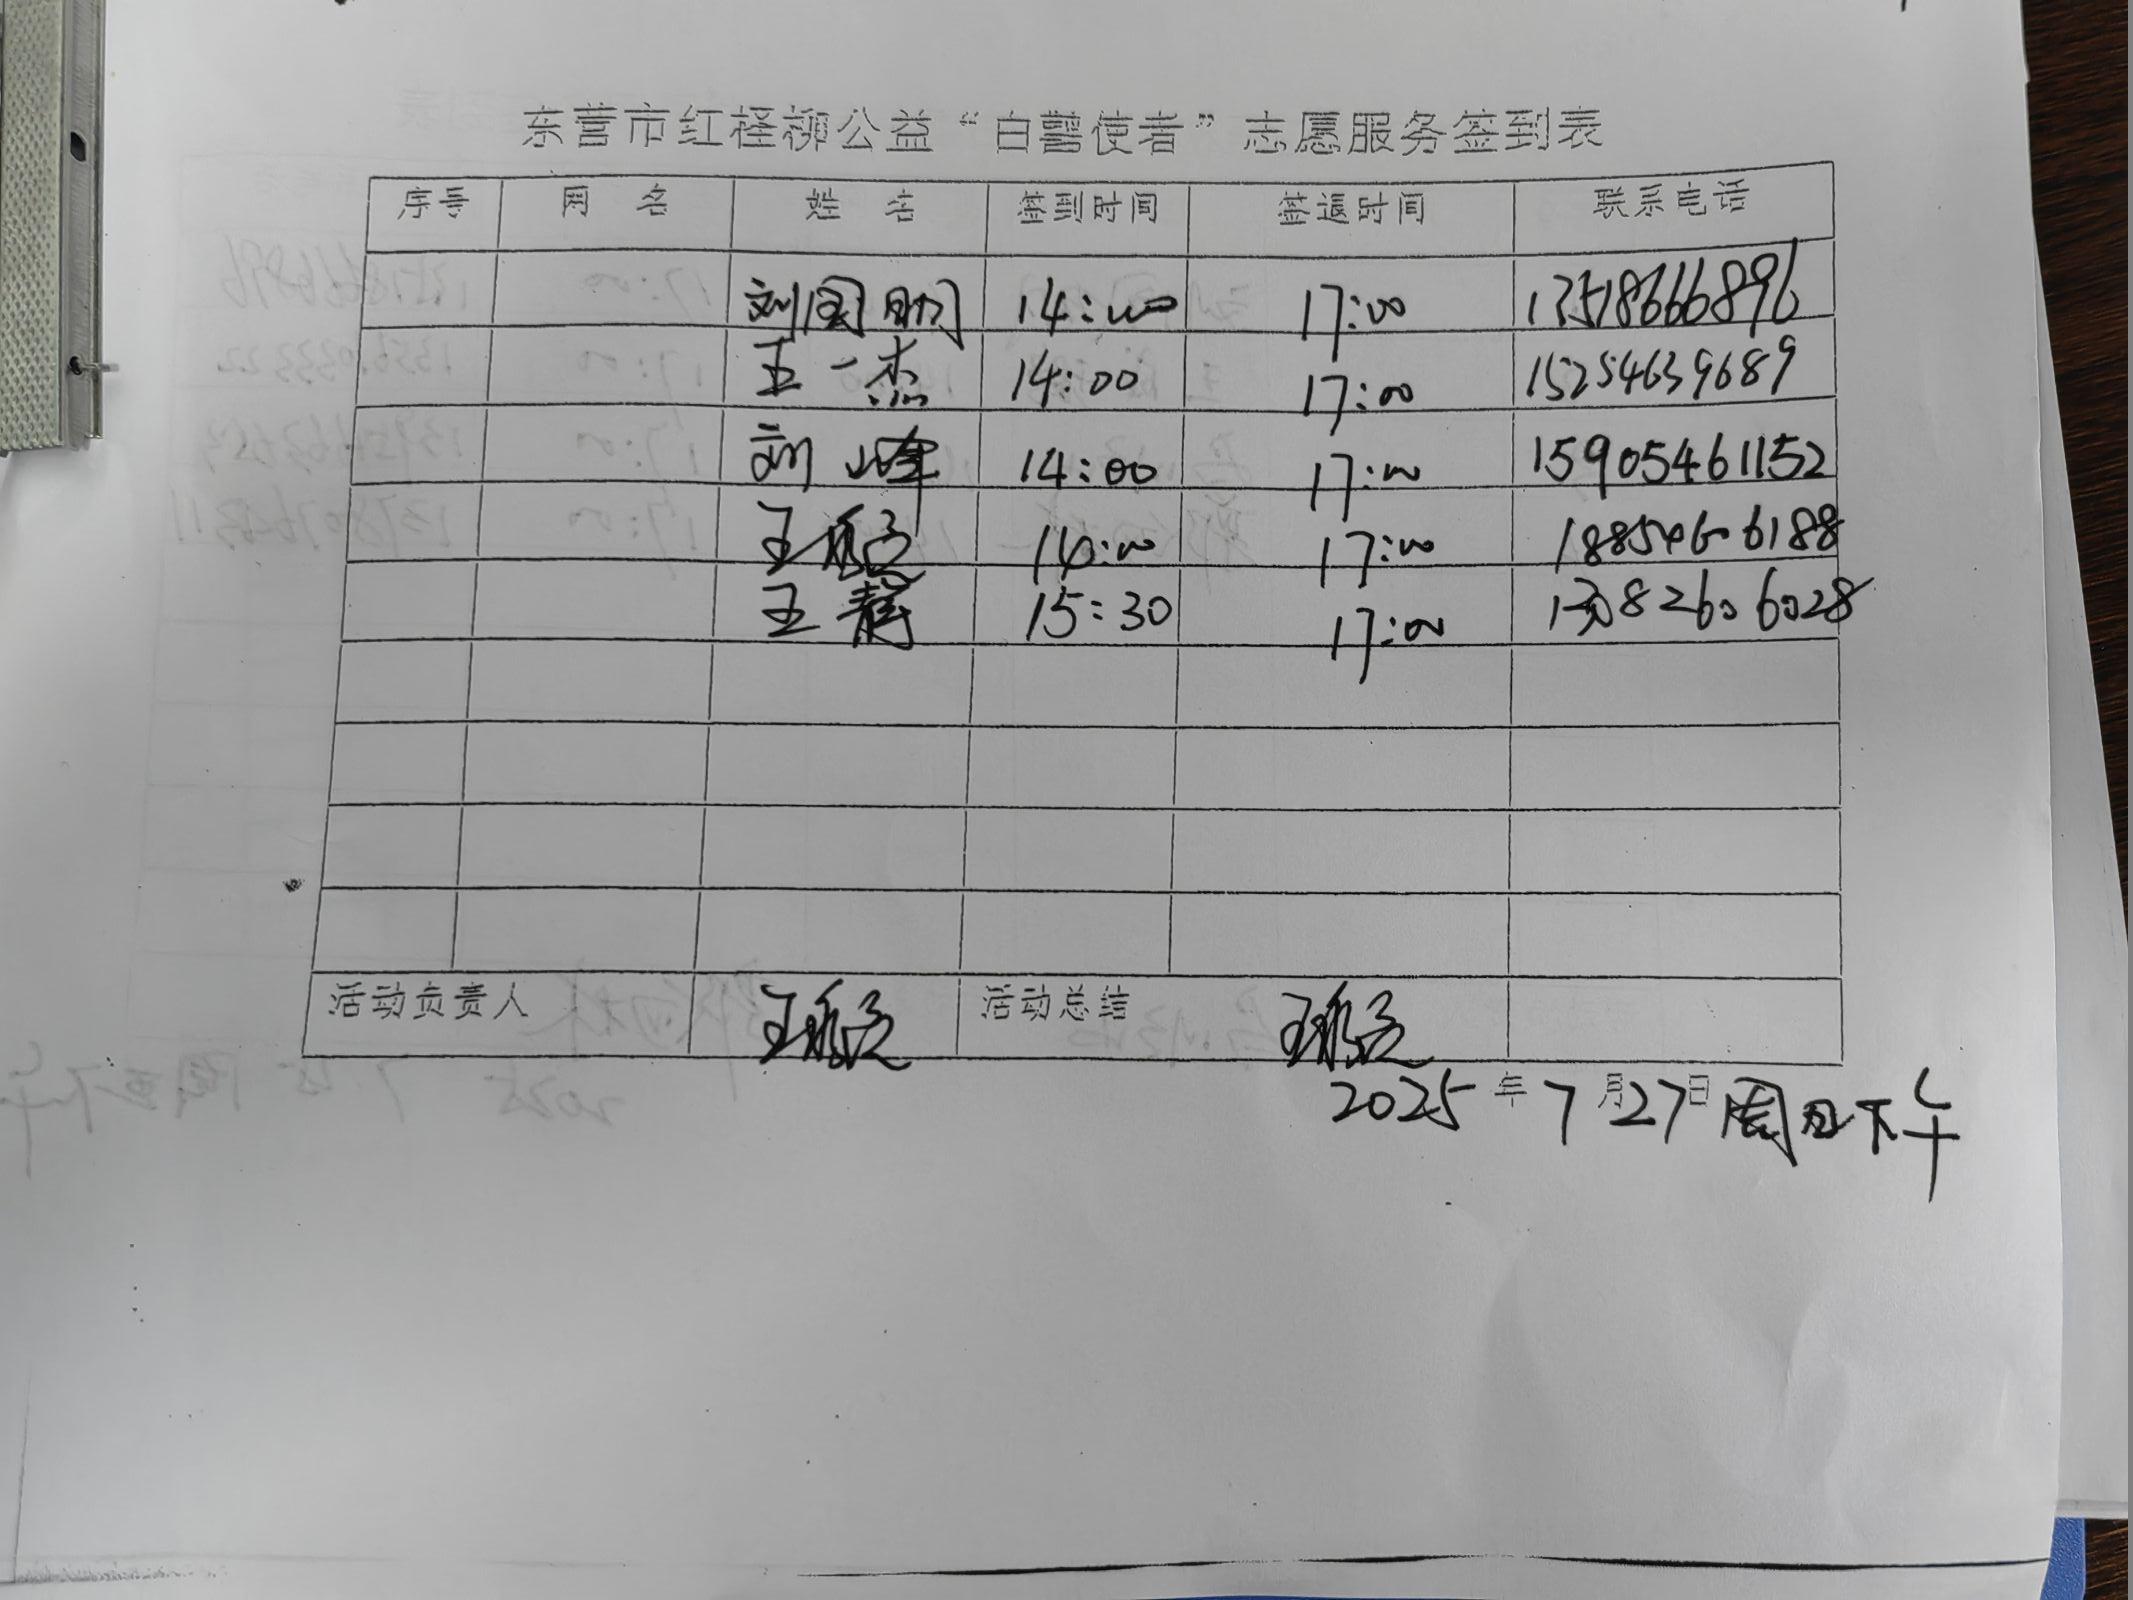 东营市红柽柳公益“白鹭使者”志愿服务签到表
序号 网 名 姓 名 签到时间 签退时间 联系电话
刘国明 14:00 17:00 17518666896
王一杰 14:00 17:00 15254639689
刘峰 14:00 17:00 15905461152
王 14:00 17:00 18854606188
王静 15:30 17:00 13082606028
活动负责人 王 活动总结 王
2025年7月27日周日下午